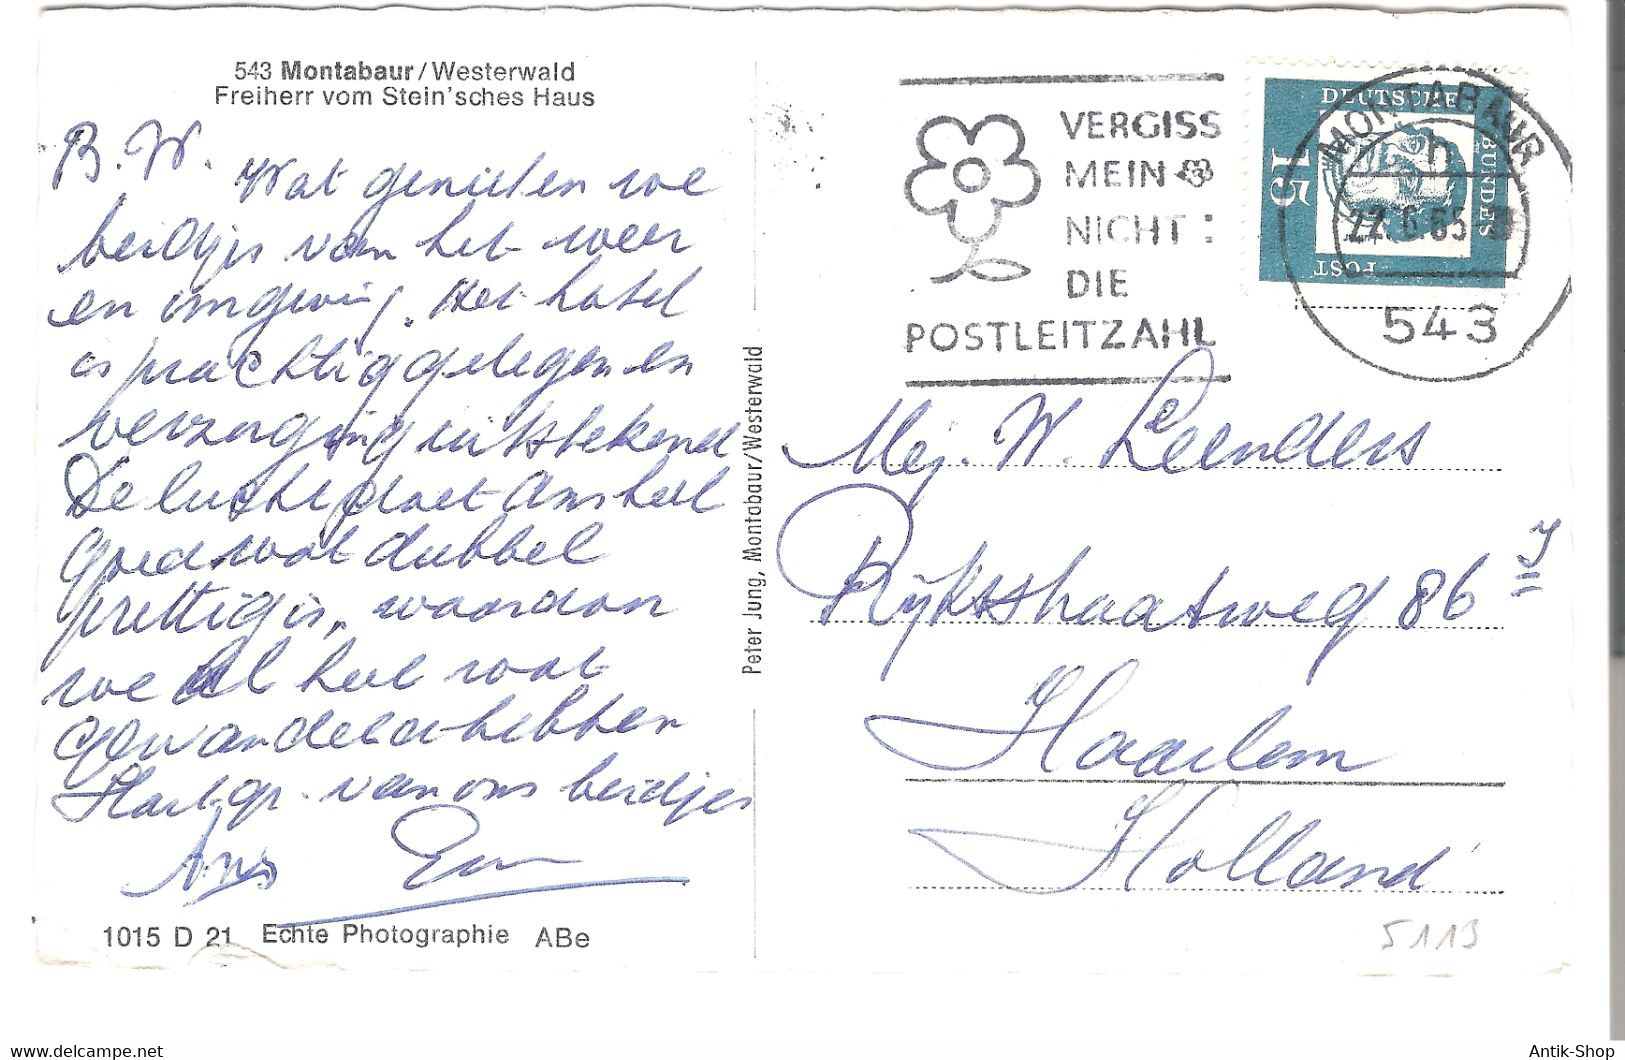 543 Montabaur/Westerwald
Freiherr vom Stein'sches Haus
B. W.
Wat genieten we
beidjes van het weer
en omgeving. Het hotel
is prachtig gelegen en
verzorging uitstekend
De lucht doet Ans heel
goed wat dubbel
prettig is, waardoor
we al heel wat
gewandeld hebben
Hart. gr. van ons beidjes
Ans
1015 D 21 Echte Photographie ABe
Peter Jung, Montabaur/Westerwald
VERGISS
MEIN
NICHT:
DIE
POSTLEITZAHL
DEUTSCHE
BUNDES
POST
15
MONTABAUR
h
22.6.65
543
Mej. W. Leenders
Rijksstraatweg 86
Haarlem
Holland
5113
Antik-Shop
delcampe.net